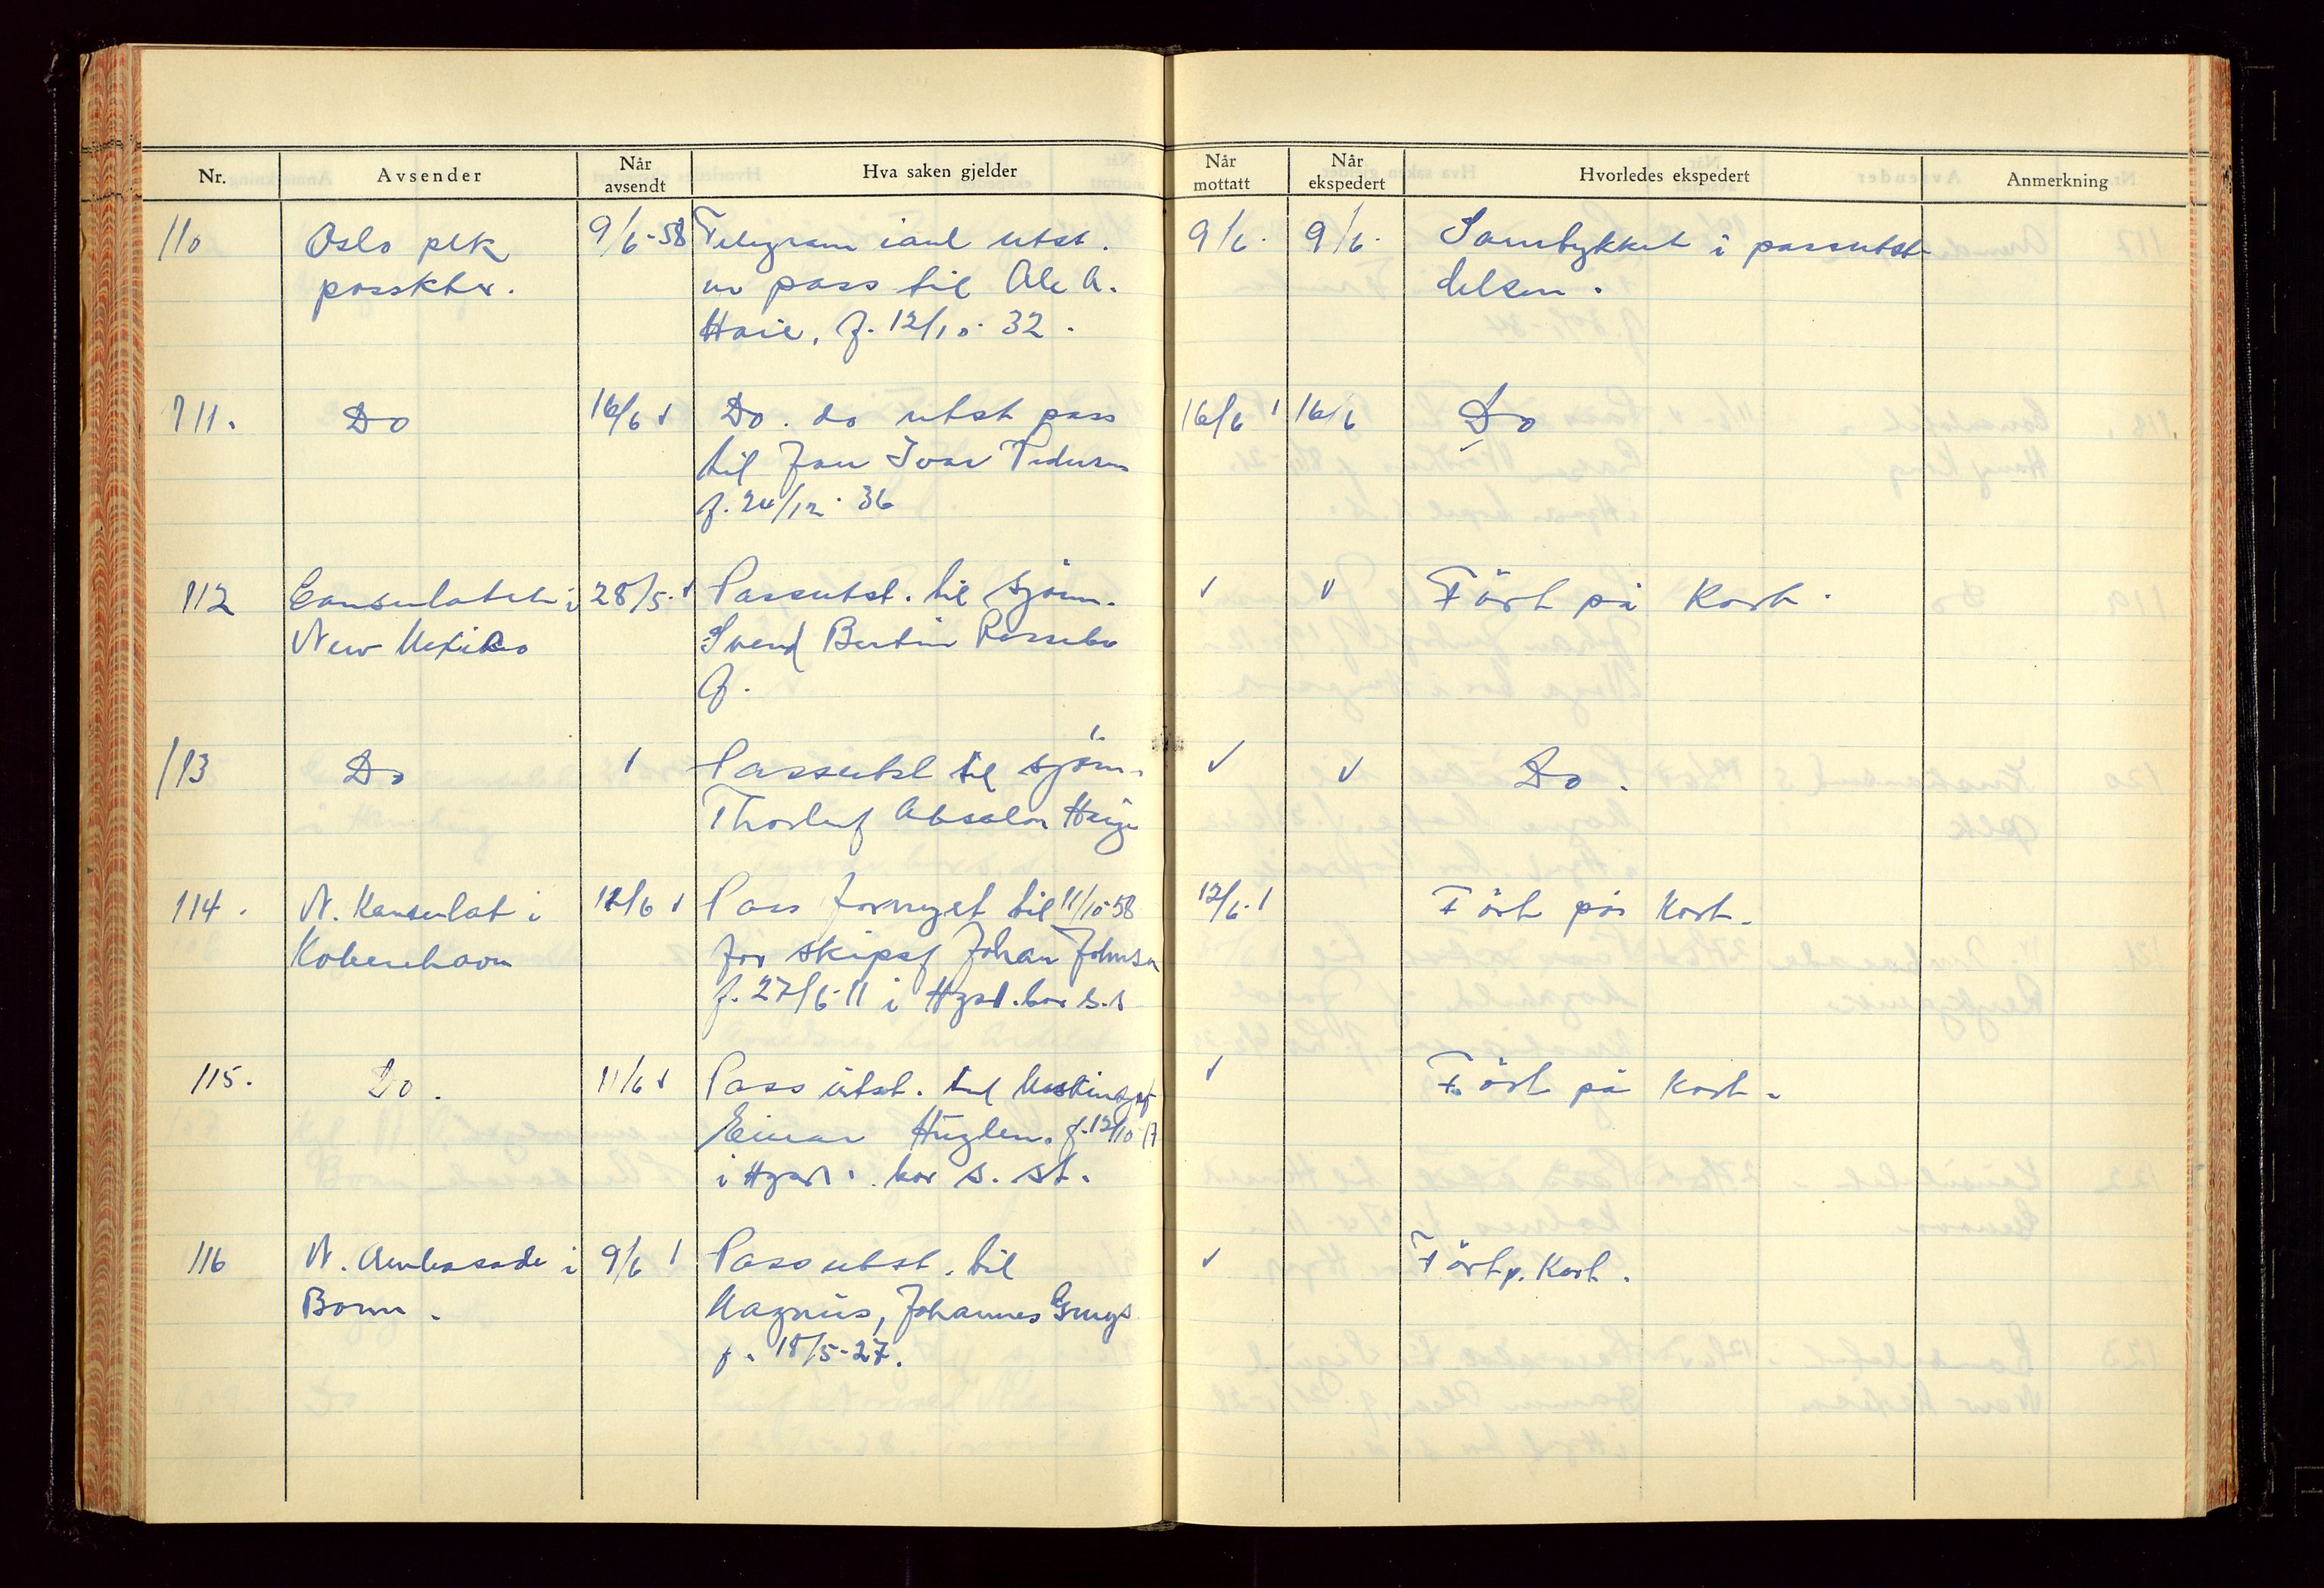 Nr. Avsender Når avsendt Hva saken gjelder Når mottatt Når ekspedert Hvorledes ekspedert Anmerkning
110 Oslo plk 9/6-58 Telegram utst. 9/6. 9/6. Samtykket i passutst-
passktr. av pass til Ole A. delsen.
Haie, f. 12/10-32.
111. Do 16/6 Do. do utst pass 16/6 16/6 Do
til Jan Ivar Pedersen
f. 24/12-36
112 Consulatet i 28/5. Passutst. til sjöm. Fört på Kort.
New Mexiko Svend Bertin
f.
113 Do Passutst til sjöm. Do.
Thorleif Absalon
114. N. Konsulat i 11/6 Pass fornyet til 11/10-58 12/6. Fört på Kort.
Kobenhavn for skipsf Johan Johnsen
f. 27/6-11 i Hgsd. bor s.s
115. Do. 11/6 Pass utst. til Fört på Kort.
Einar Huglen. f. 12/10-17
i Hgsd. bor s. st.
116 N. Ambasade i 9/6 Pass utst. til Fört p. Kort.
Bonn. Magnus, Johannes
f. 18/5-27.